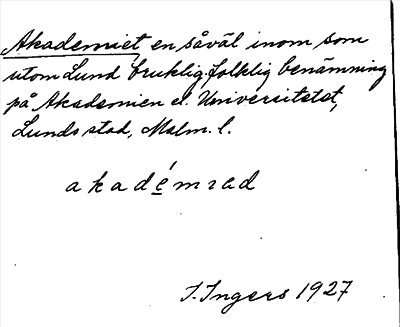 Akademiet en såväl inom som
utom Lund bruklig folklig benämning
på Akademien el. Universitetet,
Lunds stad, Malm. l.
akadémiad
I. Ingers 1927